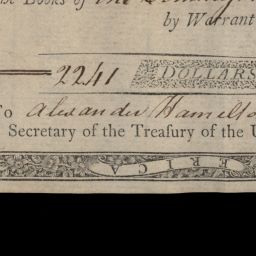 the Books of the
by Warrant
2241 DOLLARS
To Alexander Hamilto
Secretary of the Treasury of the U
ERICA